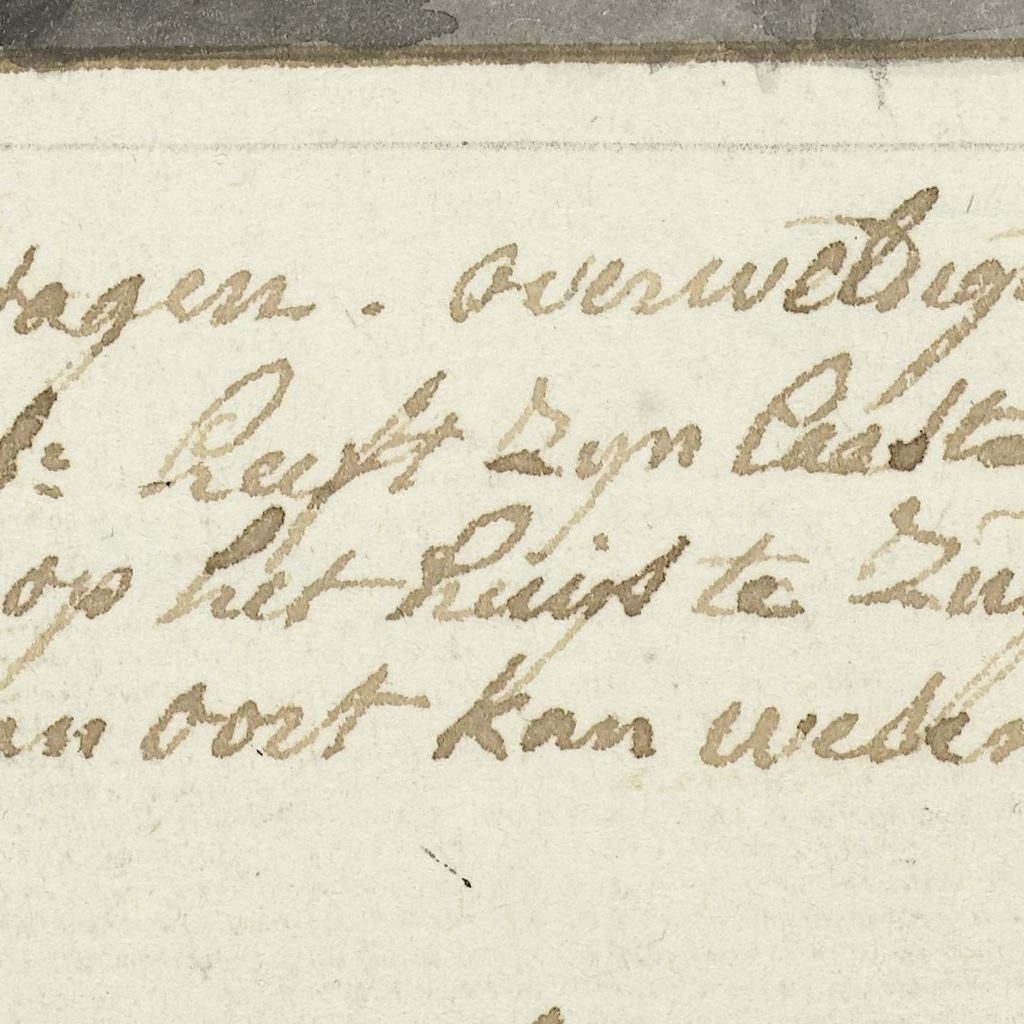 dagen. overweldig
l: heeft zyn laaste
op het huijs te Zu
an oort kan wesen